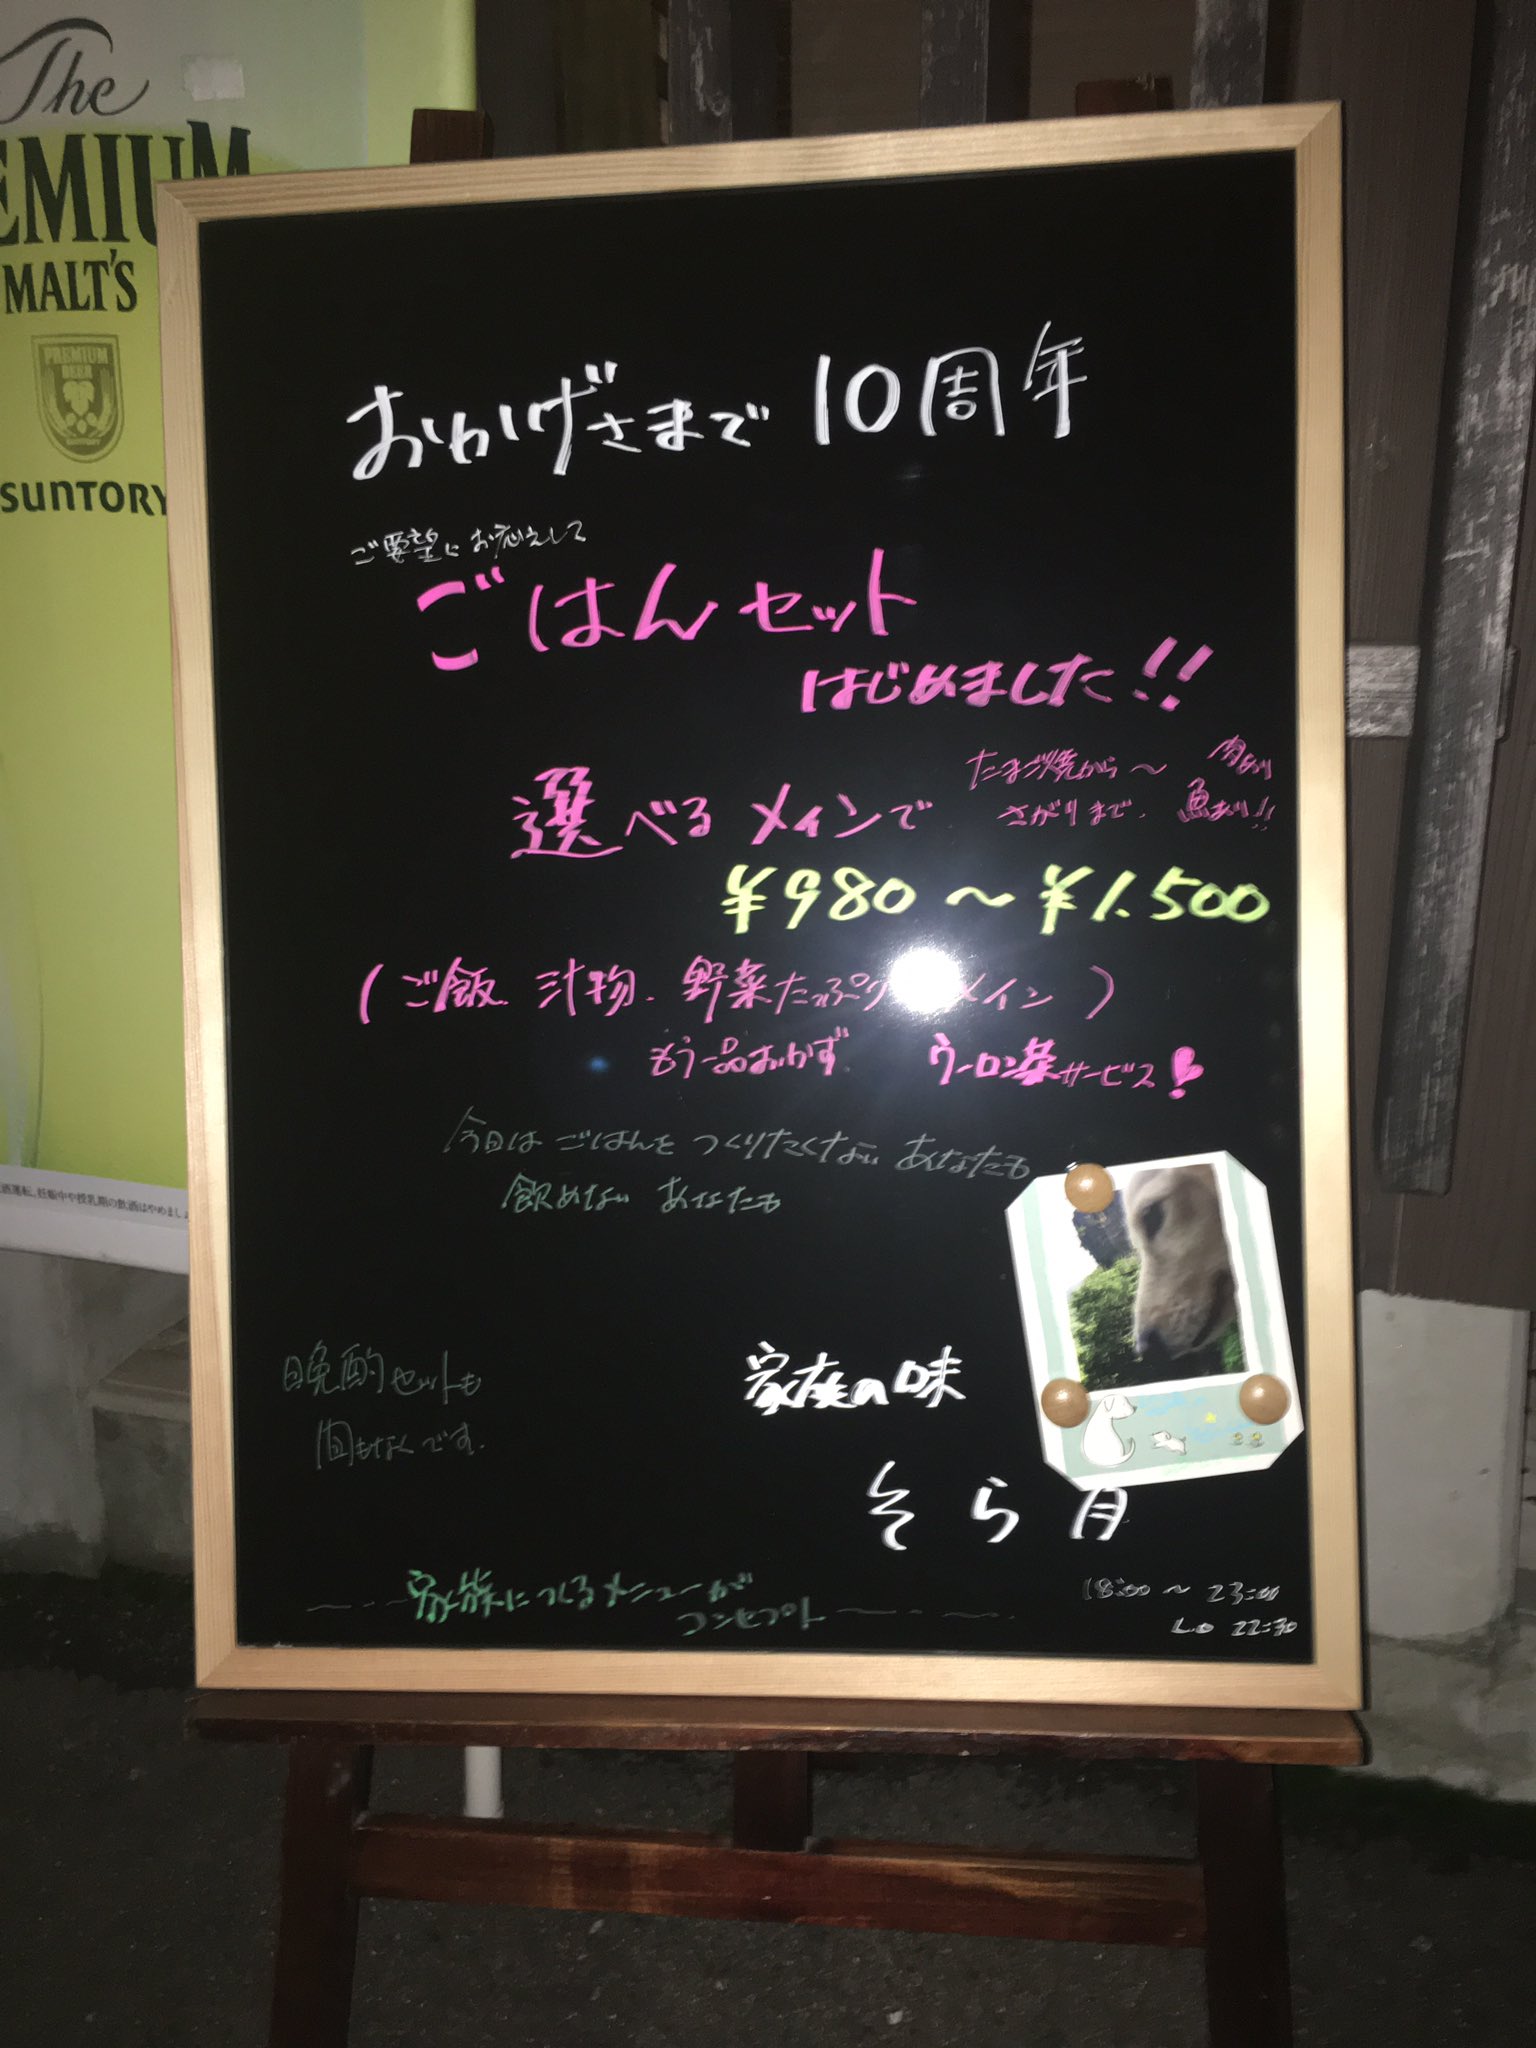 The
EMIUM
MALT'S
PREMIUM
BEER
SUNTORY
SUNTORY
酒運転。妊娠中や授乳期の飲酒はやめまし
おかげさまで10周年
ご要望にお応えして
ごはんセット
はじめました!!
選べるメインで
たまご焼から〜 肉あり
さがりまで、 魚あり!!
¥980〜¥1.500
(ご飯、汁物、野菜たっぷり メイン)
もう一品おかず ウーロン茶サービス!
今日はごはんをつくりたくないあなたも
飲めないあなたも
晩酌セットも
間もなくです.
家族の味
そら月
家族につくるメニューが
コンセプト
18:00〜23:00
L.O 22:30